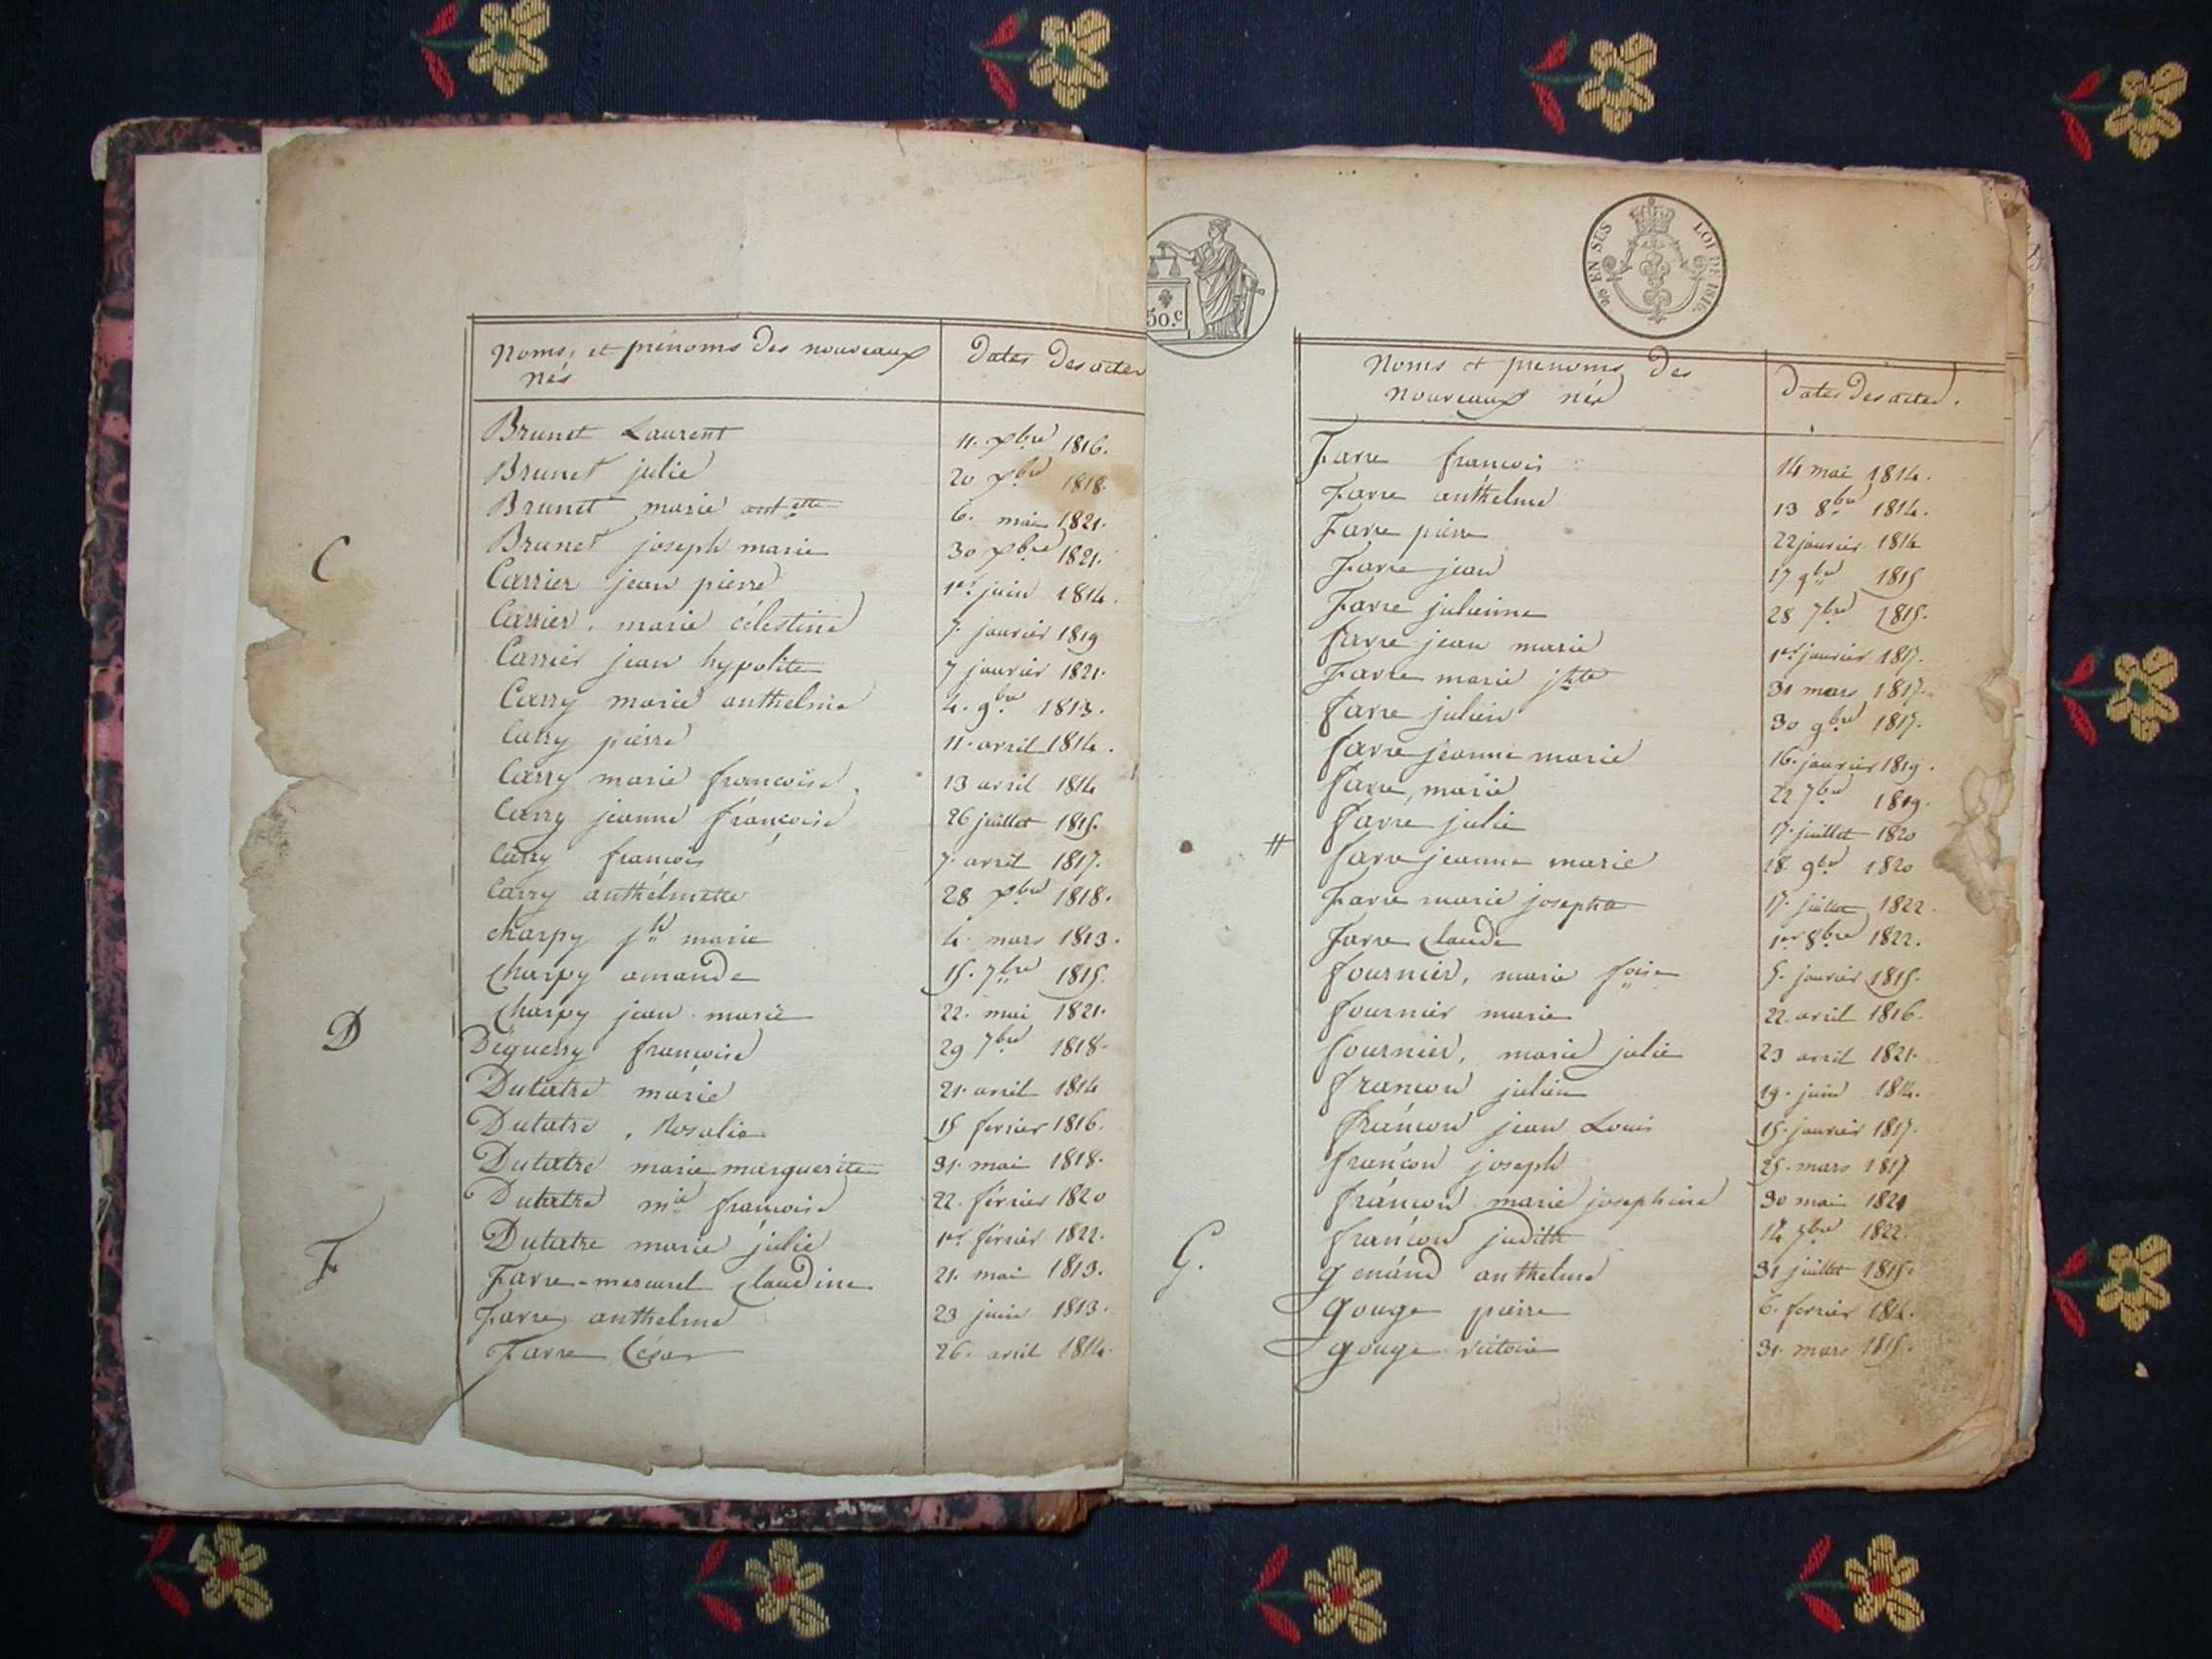 Noms, et prénoms des nouveaux
nés
Dates des actes
Brunet Laurent 11. xbre 1816.
Brunet julie 20 xbre 1818.
Brunet marie antette 6. mai 1821.
Brunet joseph marie 30 xbre 1821.
C
Carrier jean pierre 1er juin 1814.
Carrier, marie célestine 7. janvier 1819
Carrier jean hypolite 7 janvier 1821.
Carry marie anthelmie 4. 9bre 1813.
Carry pierre 11. avril 1814.
Carry marie francoise 13 avril 1814
Carry jeanne francoise 26 juillet 1815.
Carry francois 7. avril 1817.
Carry anthelmette 28 xbre 1818.
Charpy jh marie 4. mars 1813.
Charpy amande 15. 7bre 1815.
Charpy jean marie 22. mai 1821.
D
Déguerry francoise 29 7bre 1818.
Dutatre marie 21. avril 1814
Dutatre, Rosalie 15 fevrier 1816.
Dutatre marie marguerite 31. mai 1818.
Dutatre mie francoise 22. février 1820
Dutatre marie julie 1er février 1822.
F
Favre-mercuret Claudine 21. mai 1813.
Favre anthelme 23 juin 1813.
Favre César 26. avril 1814.
50.c
EN SUS
LOI DE 1816.
Noms et prenoms des
nouveaux nés
Dates des actes.
Favre francois 14 mai 1814.
Favre anthelme 13 8bre 1814.
Favre pierre 22 janvier 1814
Favre jean 17 9bre 1815
Favre julienne 28 7bre 1815.
favre jean marie 1er janvier 1817.
Favre marie jtte 31 mars 1817.
favre julien 30 9bre 1817.
favre jeanne marie 16. janvier 1819.
favre, marie 22 7bre 1819.
favre julie 17. juillet 1820
# favre jeanne marie 28 9bre 1820
Favre marie josephte 17. juillet 1822.
Favre Claude 1er 8bre 1822.
fournier, marie foise 5. janvier 1815.
fournier marie 22. avril 1816.
fournier, marie julie 23 avril 1821.
francon julien 19. juin 1814.
françon jean Louis 15. janvier 1817.
françon joseph 25. mars 1817
françon marie josephine 30 mai 1821
françon judith 14 7bre 1822.
G.
Genand anthelme 31 juillet 1815.
Gouge pierre 6. fevrier 1814.
Gouge victoire 31. mars 1815.